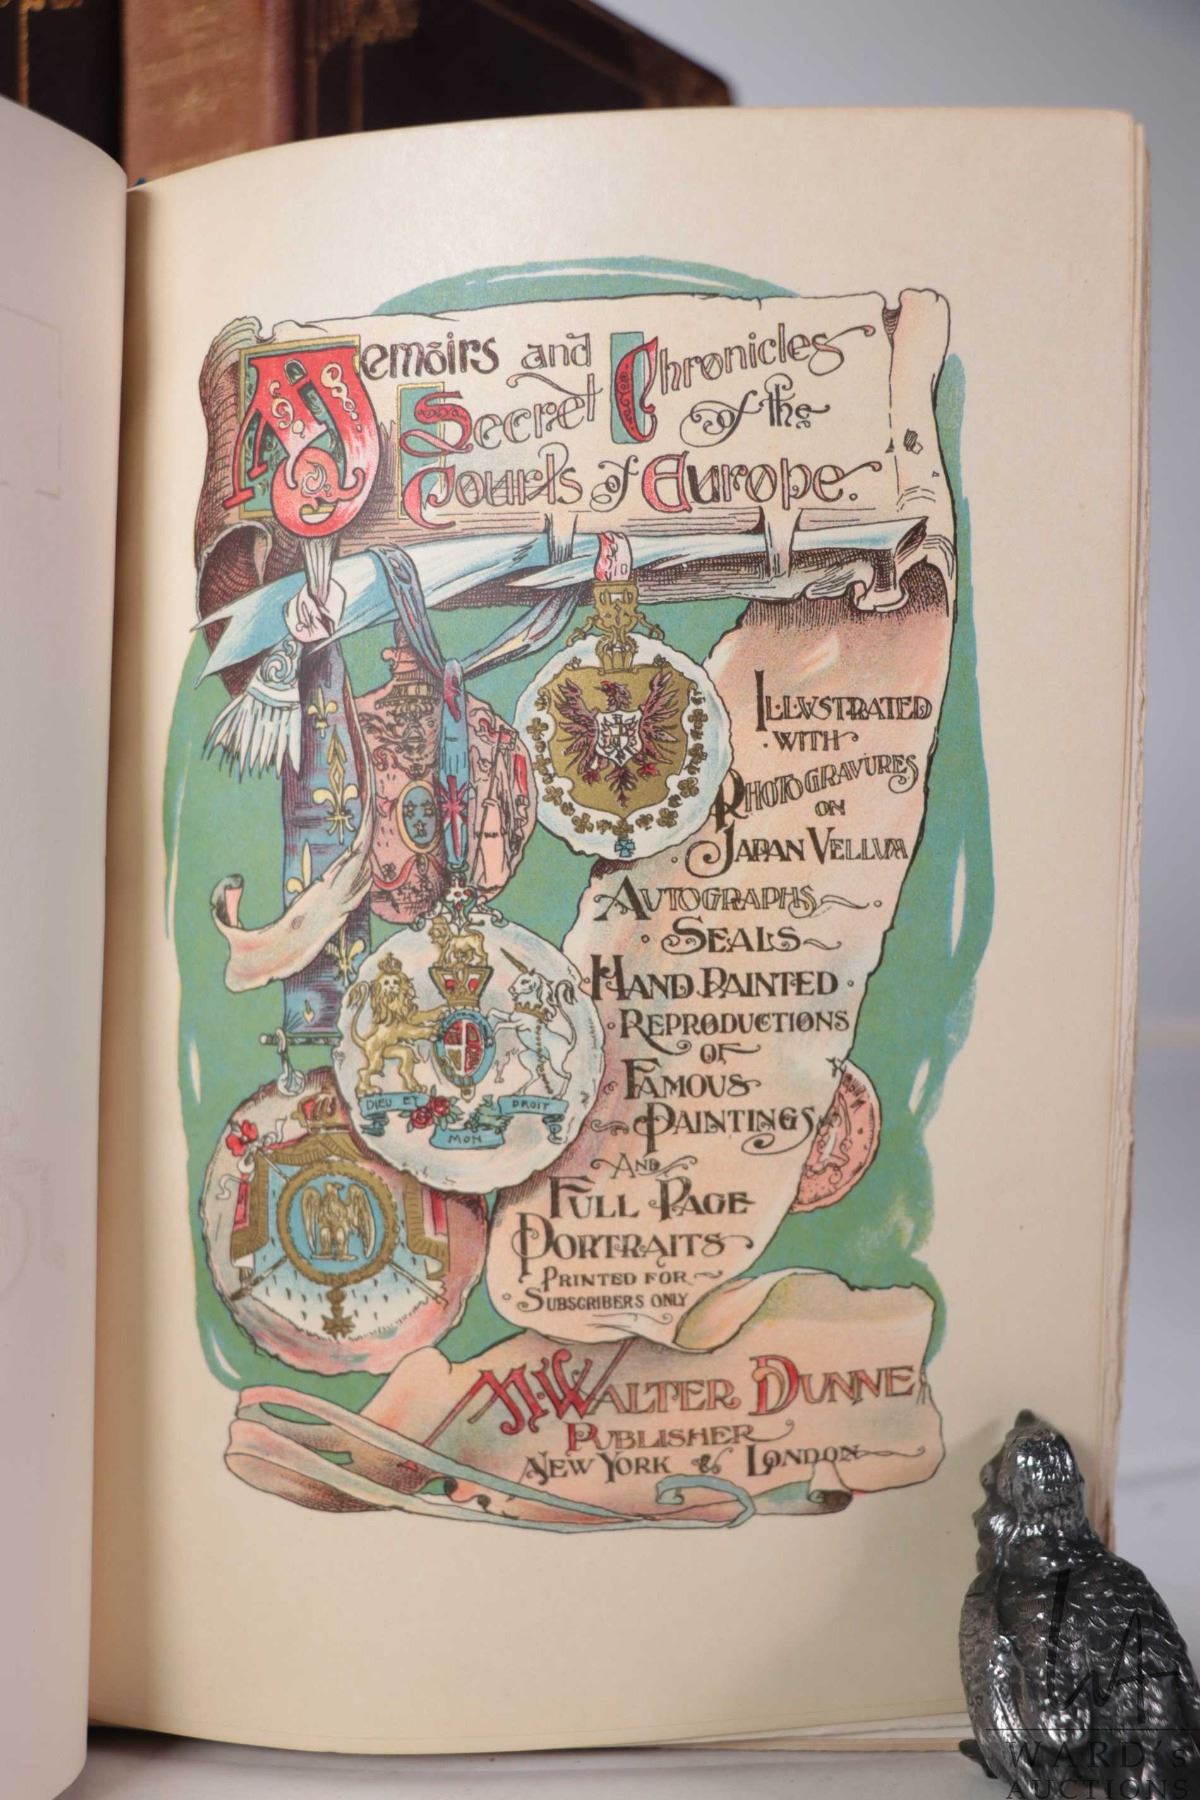 Memoirs and Chronicles
Secret of the
Courts of Europe.
ILLUSTRATED
WITH
PHOTOGRAVURES
ON
JAPAN VELLUM
AUTOGRAPHS
SEALS
HAND PAINTED
REPRODUCTIONS
OF
FAMOUS
PAINTINGS
AND
FULL PAGE
PORTRAITS
PRINTED FOR
SUBSCRIBERS ONLY
M. WALTER DUNNE
PUBLISHER
NEW YORK & LONDON
DIEU ET
DROIT
MON
WA
WARD's
AUCTIONS